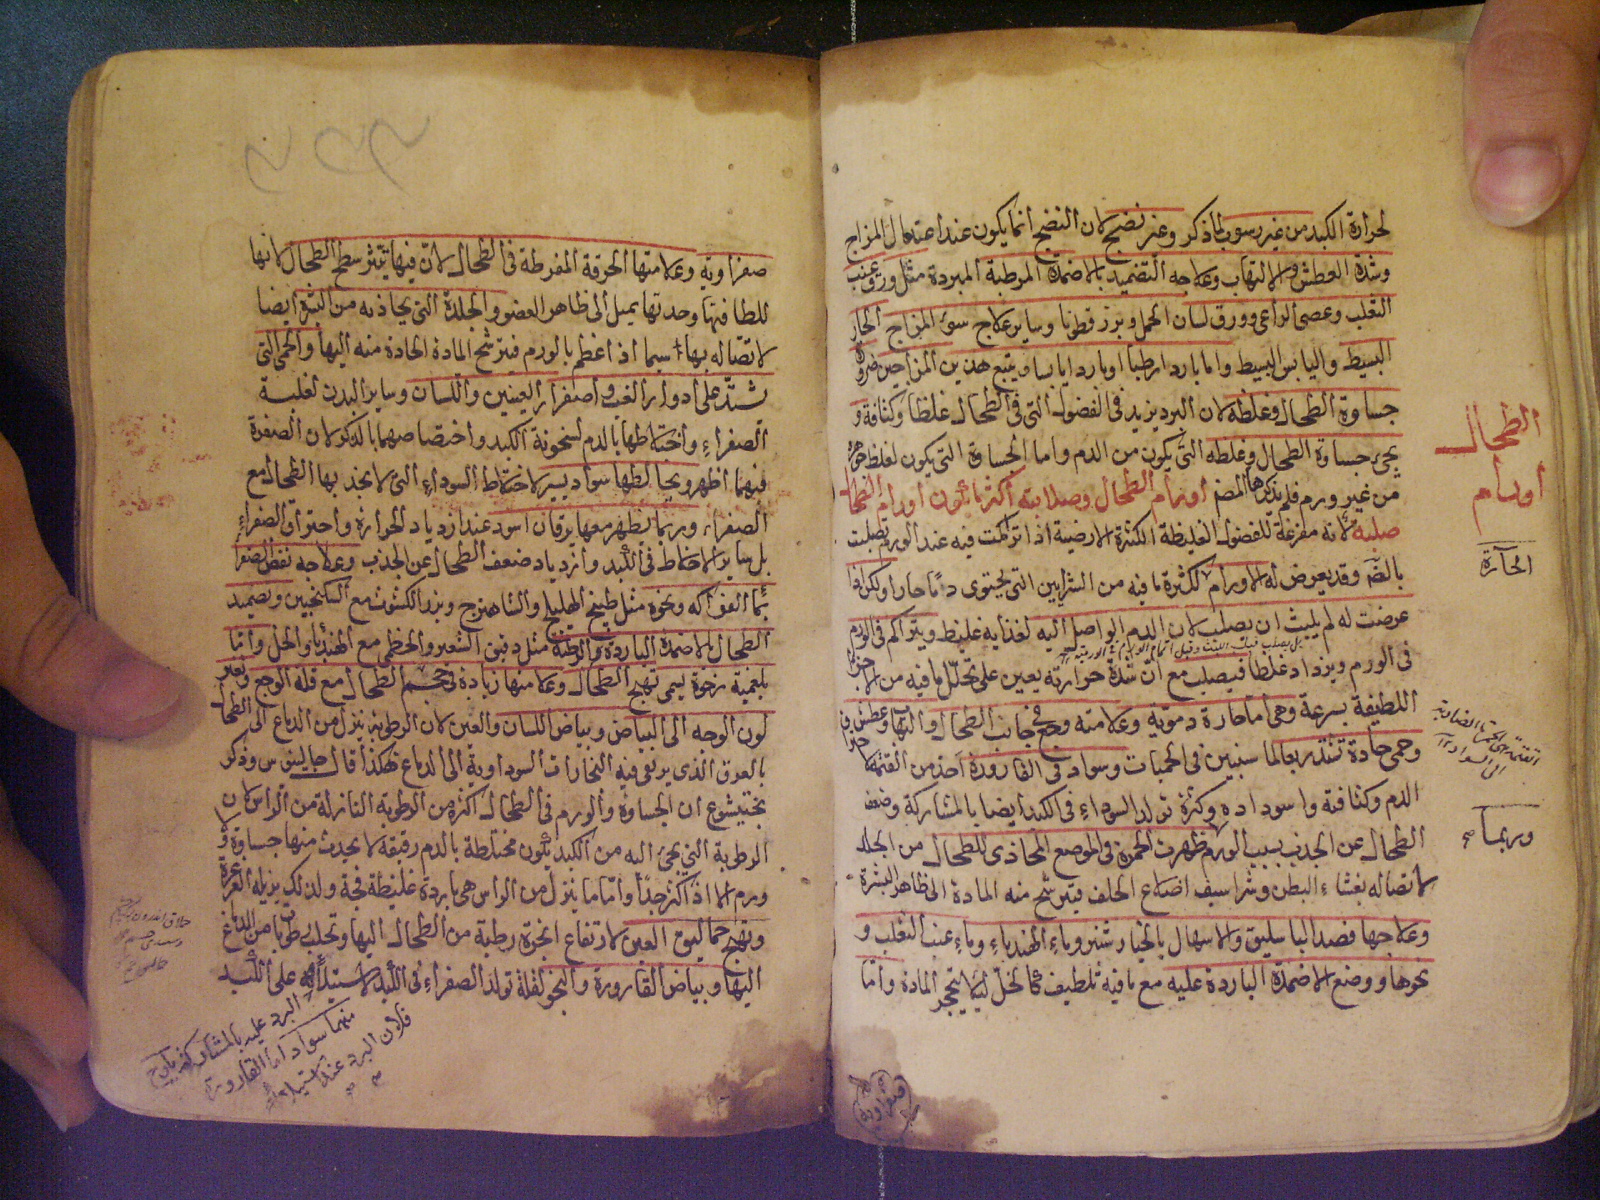 لحرارة الكبد من غير رسوب لما ذكر وغير نضيج لان النضج انما يكون عند اعتدال المزاج
وشدة العطش والالتهاب وعلاجه التضميد بالاضمدة المرطبة المبردة مثل ورق عنب
الثعلب وعصى الراعى وورق لسان الحمل وبزر قطونا وساير علاج سوء المزاج الحار
البسيط واليابس البسيط واما بارد ارطبا او باردا يابسا ويتبع هذين المزاجين ضرورة
جساوة الطحال وغلظه لان البرد يزيد فى الفضول التى فى الطحال غلظا وكثافة و
يجئ جساوة الطحال وغلظه التى يكون من الدم واما الجساوة التى يكون لغلظ جوهره
من غير ورم فلم يذكرها المصنف اورام الطحال وصلابته اكثر ما يكون اورام الطحال
صلبة لانه مفرغة للفضول الغليظة الكثيرة الارضية اذا تراكمت فيه عند الورم تصلبت
بالضم وقد يعرض له الاورام لكثرة ما فيه من الشرايين التى يحتوى دما حارا ولكن اذا
عرضت له لم يلبث ان يصلب لان الدم الواصل اليه لغذايه غليظ ويتراكم فى الورم
فى الورم ويزداد غلظا فيصلب مع ان شدة حرارته يعين على تحلل ما فيه من الاجزاء
اللطيفة بسرعة وهى اما حارة دموية وعلامته وجع فى جانب الطحال والتهاب وعطش
وحمى حادة تشتد ربعا لما سنبين فى الحميات وسواد فى القارورة آخذ من القتمة
الدم وكثافته واسوداده وكثرة تولد السوداء فى الكبد ايضا بالمشاركة وضعف
الطحال عن الجذب بسبب الورم ظهرت الحمرة فى الموضع المحاذى للطحال من الجلد
لاتصاله بغشاء البطن وشراسيف اضلاع الخلف فيترشح منه المادة الى ظاهر البشرة
وعلاجها فصد الباسليق والاسهال بالخيار شنبر وماء الهندباء وماء عنب الثعلب و
نحوها ووضع الاضمدة الباردة عليه مع ما فيه تلطيف كالخل لئلا يتحجر المادة واما
الطحال
اورام
الحارة
وربما
صفراوية
صفراوية وعلامتها الحرقة المفرطة فى الطحال لان فيها يتبثر سطح الطحال لانها
للطافتها وحدتها يميل الى ظاهر العضو والجلدة التى يحاذيه من البثر ايضا
لاتصاله بها لا سيما اذا عظم بالورم فيترشح المادة الحادة منه اليها والحمى التى
تشتد على ادوار الغب واصفرار العينين واللسان وساير البدن لغلبة
الصفراء واختلاطها بالدم لسخونة الكبد واختصاصهما بالذكر لان الصفرة
فيهما اظهر ويخالطها سواد يسير لاختلاط السوداء التى لا يجذبها الطحال مع
الصفراء وربما تظهر معها يرقان اسود عند ازدياد الحرارة واحتراق الصفراء
بل ساير الاخلاط فى الكبد وازدياد ضعف الطحال عن الجذب وعلاجه نفض الصفراء
بماء الفواكه ونحوه مثل طبيخ الهليلج والشاهترج وبزر الكشوث مع السكنجبين وتضميد
الطحال بالاضمدة الباردة والرطبة مثل دقيق الشعير والخطمى مع الهندباء والخل واما
بلغمية رخوة يسمى تهيج الطحال وعلامتها زيادة فى حجم الطحال مع قلة الوجع وتغير
لون الوجه الى البياض وبياض اللسان والعين لان الرطوبة ينزل من الدماغ الى الطحال
بالعرق الذى يرتقى فيه البخارات السوداوية الى الدماغ هكذا قال جالينوس وذكر
بختيشوع ان الجساوة والورم فى الطحال اكثره من الرطوبة النازلة من الراس لان
الرطوبة التى يجئ اليه من الكبد يكون مختلطة بالدم رقيقة لا يحدث منها جساوة و
ورم الا اذا كثر جدا واما ما ينزل من الراس هى باردة غليظة فجة ولذلك يزيله الغرغرة
وتهيج حماليق العين لارتفاع ابخرة رطبة من الطحال اليها وتحلب رطوبات من الدماغ
اليها وبياض القارورة والنجو لقلة تولد الصفراء فى الكبد لاستيلاء على الكبد
البرد عليه بالمشاركة
منهما سواد اما القارورة
فلان البرد عند استيلائه